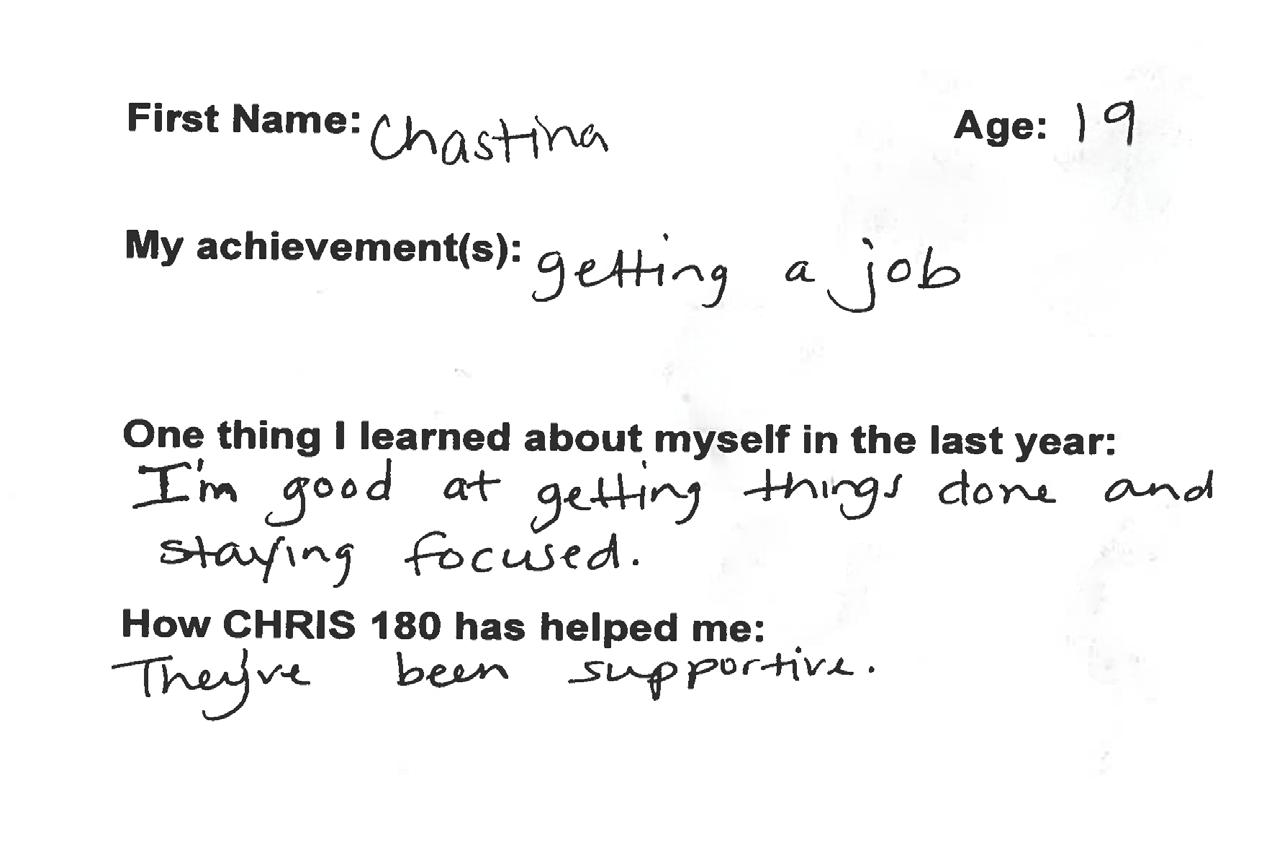 First Name: Chastina Age: 19
My achievement(s): getting a job
One thing I learned about myself in the last year:
I'm good at getting things done and
staying focused.
How CHRIS 180 has helped me:
They've been supportive.